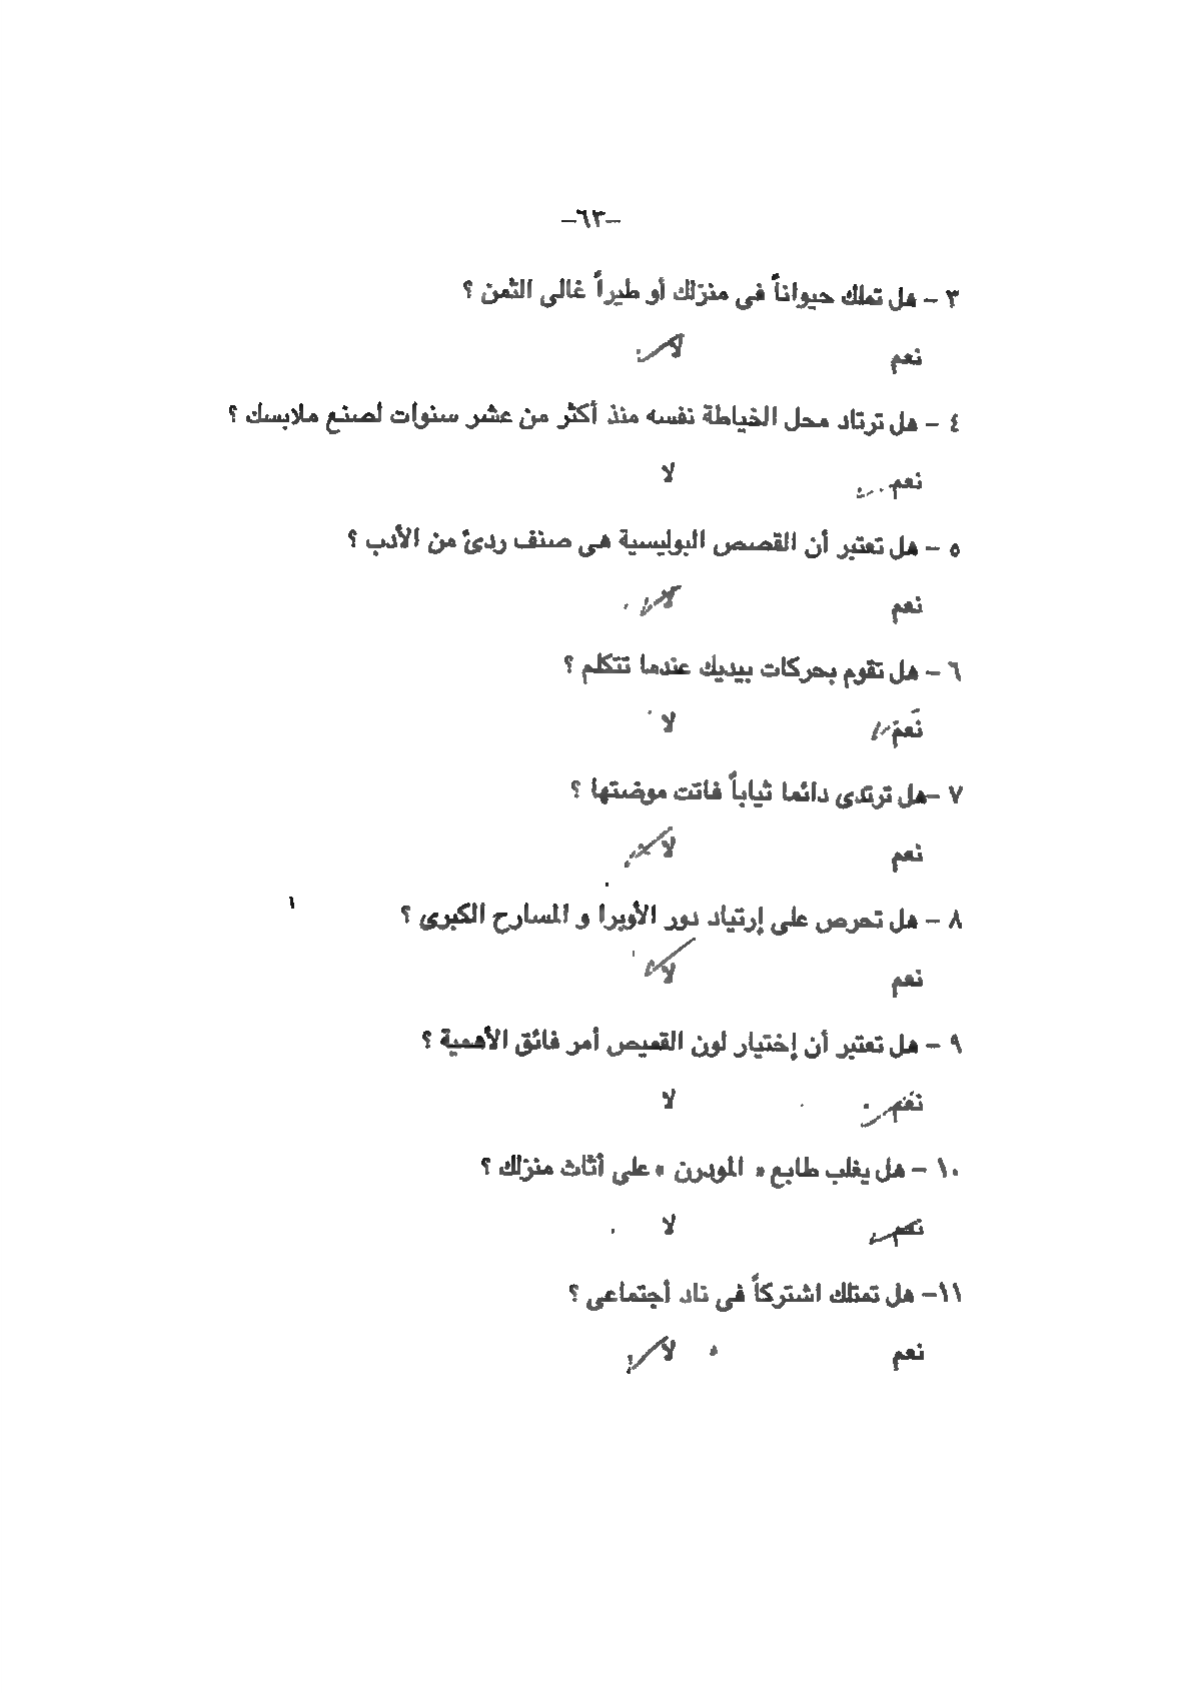 –٦٣–
٣ – هل تملك حيواناً فى منزلك أو طيراً غالى الثمن ؟
نعم لا
٤ – هل ترتاد محل الخياطة نفسه منذ أكثر من عشر سنوات لصنع ملابسك ؟
نعم لا
٥ – هل تعتبر أن القصص البوليسية هى صنف ردئ من الأدب ؟
نعم لا
٦ – هل تقوم بحركات بيديك عندما تتكلم ؟
نعم لا
٧ –هل ترتدى دائما ثياباً فاتت موضتها ؟
نعم لا
٨ – هل تحرص على إرتياد دور الأوبرا و المسارح الكبرى ؟
نعم لا
٩ – هل تعتبر أن إختيار لون القميص أمر فائق الأهمية ؟
نعم لا
١٠ – هل يغلب طابع « المودرن » على أثاث منزلك ؟
نعم لا
١١– هل تمتلك اشتركاً فى ناد أجتماعى ؟
نعم لا